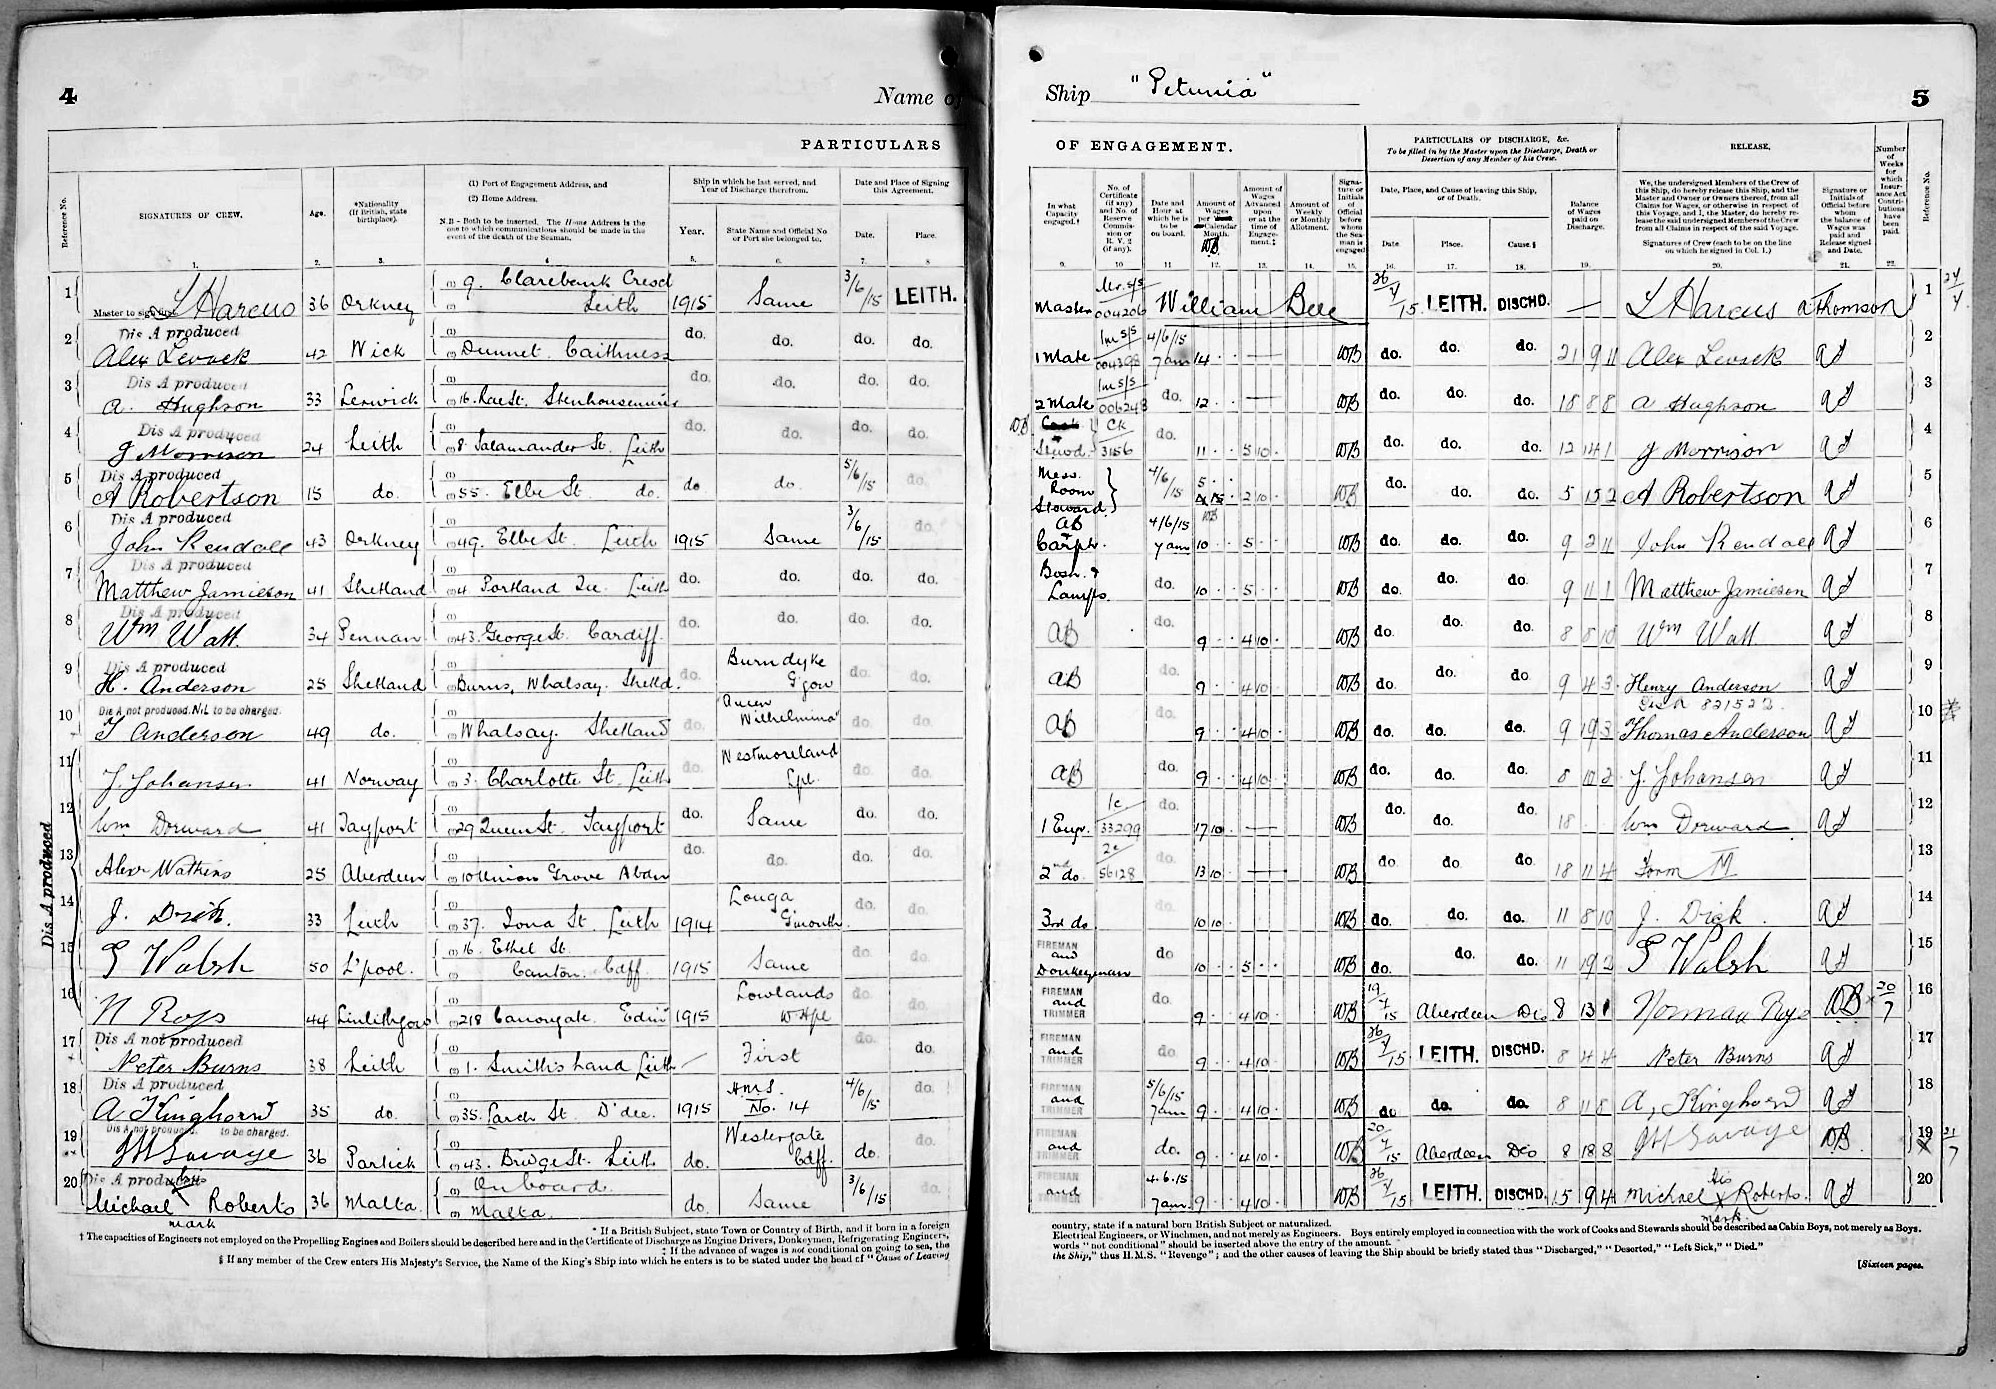 4
Name of
PARTICULARS
Reference No.
SIGNATURES OF CREW.
Age.
*Nationality
(If British, state
birthplace).
(1) Port of Engagement Address, and
(2) Home Address.
N.B - Both to be inserted. The Home Address is the
one to which communications should be made in the
event of the death of the Seaman.
Ship in which he last served, and
Year of Discharge therefrom.
Year.
State Name and Official No
or Port she belonged to.
Date and Place of Signing
this Agreement.
Date.
Place.
1. 2. 3. 4 5. 6. 7. 8
1 Master to sign first L Harcus 36 Orkney (1) 9. Clarebank Cresct (2) Leith 1915 Same 3/6/15 LEITH.
2 Dis A produced Alex Levack 42 Wick (1) (2) Dunnet. Caithness do. do. do. do.
3 Dis A produced A. Hughson 33 Lerwick (1) (2) 16. Rae St. Stenhousemuir do. do. do. do.
4 Dis A produced J Morrison 24 Leith (1) (2) 8. Salamander St. Leith do. do. do. do.
5 Dis A produced A Robertson 15 do. (1) (2) 55. Elbe St. do. do do. 5/6/15 do.
6 Dis A produced John Rendall 43 Orkney (1) (2) 49. Elbe St. Leith 1915 Same 3/6/15 do.
7 Dis A produced Matthew Jamieson 41 Shetland (1) (2) 4 Portland Leith do. do. do. do.
8 Dis A produced Wm Watt. 34 Pennan (1) (2) 43. George St. Cardiff. do. do. do. do.
9 Dis A produced H. Anderson 25 Shetland (1) (2) Burns, Whalsay. Shetld. do. Burndyke G'gow do. do.
10 Dis A not produced. Nil to be charged. T Anderson 49 do. (1) (2) Whalsay. Shetland do. Queen Wilhelmina do. do.
11 J. Johansen 41 Norway (1) (2) 3. Charlotte St. Leith do. Westmoreland Lpl. do. do.
12 Wm Dorward 41 Tayport (1) (2) 29 Queen St. Tayport do. Same do. do.
13 Alexr Watkins 25 Aberdeen (1) (2) 10 Union Grove Abdn do. do. do. do.
Dis A produced
14 J. Dick. 33 Leith (1) (2) 37. Iona St. Leith 1914 Longa G'mouth. do. do.
15 Walsh 50 L'pool. (1) 16. Ethel St. (2) Canton. Cdff. 1915 Same do. do.
16 N Roys 44 Linlithgow (1) (2) 218 Canongate. Edin 1915 Lowlands W Hpl do. do.
17 Dis A not produced Peter Burns 38 Leith (1) (2) 1. Smith's Land Leith First do. do.
18 Dis A produced A Kinghorn 35 do. (1) (2) 35. Larch St. D'dee. 1915 H.M.S. No. 14 4/6/15 do.
19 Dis A not produced. to be charged. Savage 36 Partick (1) (2) 43. Bridge St. Leith do. Westergate Cdff. do. do.
20 Dis A produced Michael his X mark Roberts 36 Malta (1) On board. (2) Malta. do. Same 3/6/15 do.
* If a British Subject, state Town or Country of Birth, and if born in a foreign
† The capacities of Engineers not employed on the Propelling Engines and Boilers should be described here and in the Certificate of Discharge as Engine Drivers, Donkeymen, Refrigerating Engineers,
‡ If the advance of wages is not conditional on going to sea, the
§ If any member of the Crew enters His Majesty's Service, the Name of the King's Ship into which he enters is to be stated under the head of "Cause of Leaving
Ship "Petunia" 5
OF ENGAGEMENT.
PARTICULARS OF DISCHARGE, &c.
To be filled in by the Master upon the Discharge, Death or
Desertion of any Member of his Crew.
RELEASE.
Number
of
Weeks
for
which
Insur-
ance Act
Contri-
butions
have
been
paid.
Reference No.
In what
Capacity
engaged.†
No. of
Certificate
(if any)
and No. of
Reserve
Commis-
sion or
R. V. 2
(if any).
Date and
Hour at
which he is
to be
on board.
Amount of
Wages
per
Calendar
Month.
WB
Amount of
Wages
Advanced
upon
or at the
time of
Engage-
ment.‡
Amount of
Weekly
or Monthly
Allotment.
Signa-
ture or
Initials
of
Official
before
whom
the Sea-
man is
engaged
Date, Place, and Cause of leaving this Ship,
or of Death.
Date. Place. Cause.§
Balance
of Wages
paid on
Discharge.
We, the undersigned Members of the Crew of
this Ship, do hereby release this Ship, and the
Master and Owner or Owners thereof, from all
Claims for Wages, or otherwise in respect of
this Voyage, and I, the Master, do hereby re-
lease the said undersigned Members of the Crew
from all Claims in respect of the said Voyage.
Signatures of Crew (each to be on the line
on which he signed in Col. 1.)
Signature or
Initials of
Official before
whom
the balance of
Wages was
paid and
Release signed
and Date.
9. 10 11 12. 13. 14. 15. 16. 17. 18. 19. 20. 21. 22.
Master 004206 William Bell 26/7/15 LEITH. DISCHD. — L Harcus A Thomson 1 24/7
1 Mate 1m s/s 004398 4/6/15 7am 14 — WB do. do. do. 21 9 11 Alex Levack 2
2 Mate 1m s/s 006248 do. 12 — WB do. do. do. 18 8 8 A Hughson 3
WB Cook Stewd. Ck 3156 do. 11 5 10 WB do. do. do. 12 14 1 J Morrison 4
Mess Room Steward 4/6/15 5 2 10 WB do. do. do. 5 15 2 A Robertson 5
AB Carptr. 4/6/15 7am WB 10 5 WB do. do. do. 9 2 11 John Rendall 6
Bosn. & Lamps. do. 10 5 WB do. do. do. 9 11 1 Matthew Jamieson 7
AB do. 9 4 10 WB do. do. do. 8 8 10 Wm Watt 8
AB do. 9 4 10 WB do. do. do. 9 4 3 Henry Anderson 9
Dis A 821522
AB do. 9 4 10 WB do. do. do. 9 19 3 Thomas Anderson 10
AB do. 9 4 10 WB do. do. do. 8 10 2 J. Johansen 11
1 Engr. 1c 33299 do. 17 10 — WB do. do. do. 18 Wm Dorward 12
2nd do. 2c 56128 do. 13 10 — WB do. do. do. 18 11 4 Form M 13
3rd do do. 10 10 WB do. do. do. 11 8 10 J. Dick. 14
FIREMAN and Donkeyman do 10 5 WB do. do. do. 11 19 2 Walsh 15
FIREMAN and TRIMMER do. 9 4 10 WB 19/7/15 Aberdeen Dis 8 13 1 Norman Roys WB x 20/7 16
FIREMAN and TRIMMER do. 9 4 10 WB 26/7/15 LEITH. DISCHD. 8 4 4 Peter Burns 17
FIREMAN and TRIMMER 5/6/15 7am 9 4 10 WB do do. do. 8 11 8 A, Kinghorn 18
FIREMAN and TRIMMER do. 9 4 10 WB 20/7/15 Aberdeen Dis 8 18 8 Savage WB 19 x 21/7
FIREMAN and TRIMMER 4.6.15 7am 9 4 10 WB 26/7/15 LEITH. DISCHD. 15 9 4 Michael his X mark Roberts. 20
country, state if a natural born British Subject or naturalized.
Electrical Engineers, or Winchmen, and not merely as Engineers. Boys entirely employed in connection with the work of Cooks and Stewards should be described as Cabin Boys, not merely as Boys.
words "not conditional" should be inserted above the entry of the amount.
the Ship," thus H.M.S. "Revenge"; and the other causes of leaving the Ship should be briefly stated thus "Discharged," "Deserted," "Left Sick," "Died."
[Sixteen pages.